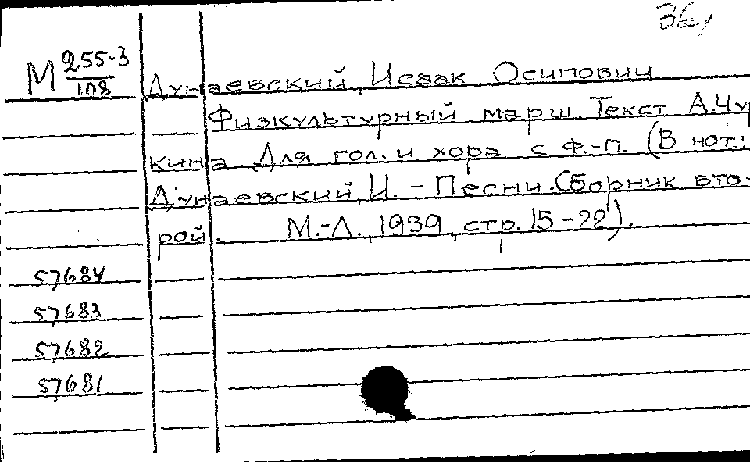 М 255-3
108
Дунаевский, Исаак Осипович
Физкультурный марш. Текст А. Чур
кина. Для гол. и хора с ф.-п. (В нот.:
Дунаевский, И. - Песни. Сборник вто-
рой. М.-Л., 1939, стр. 15-22).
57684
57683
57682
57681